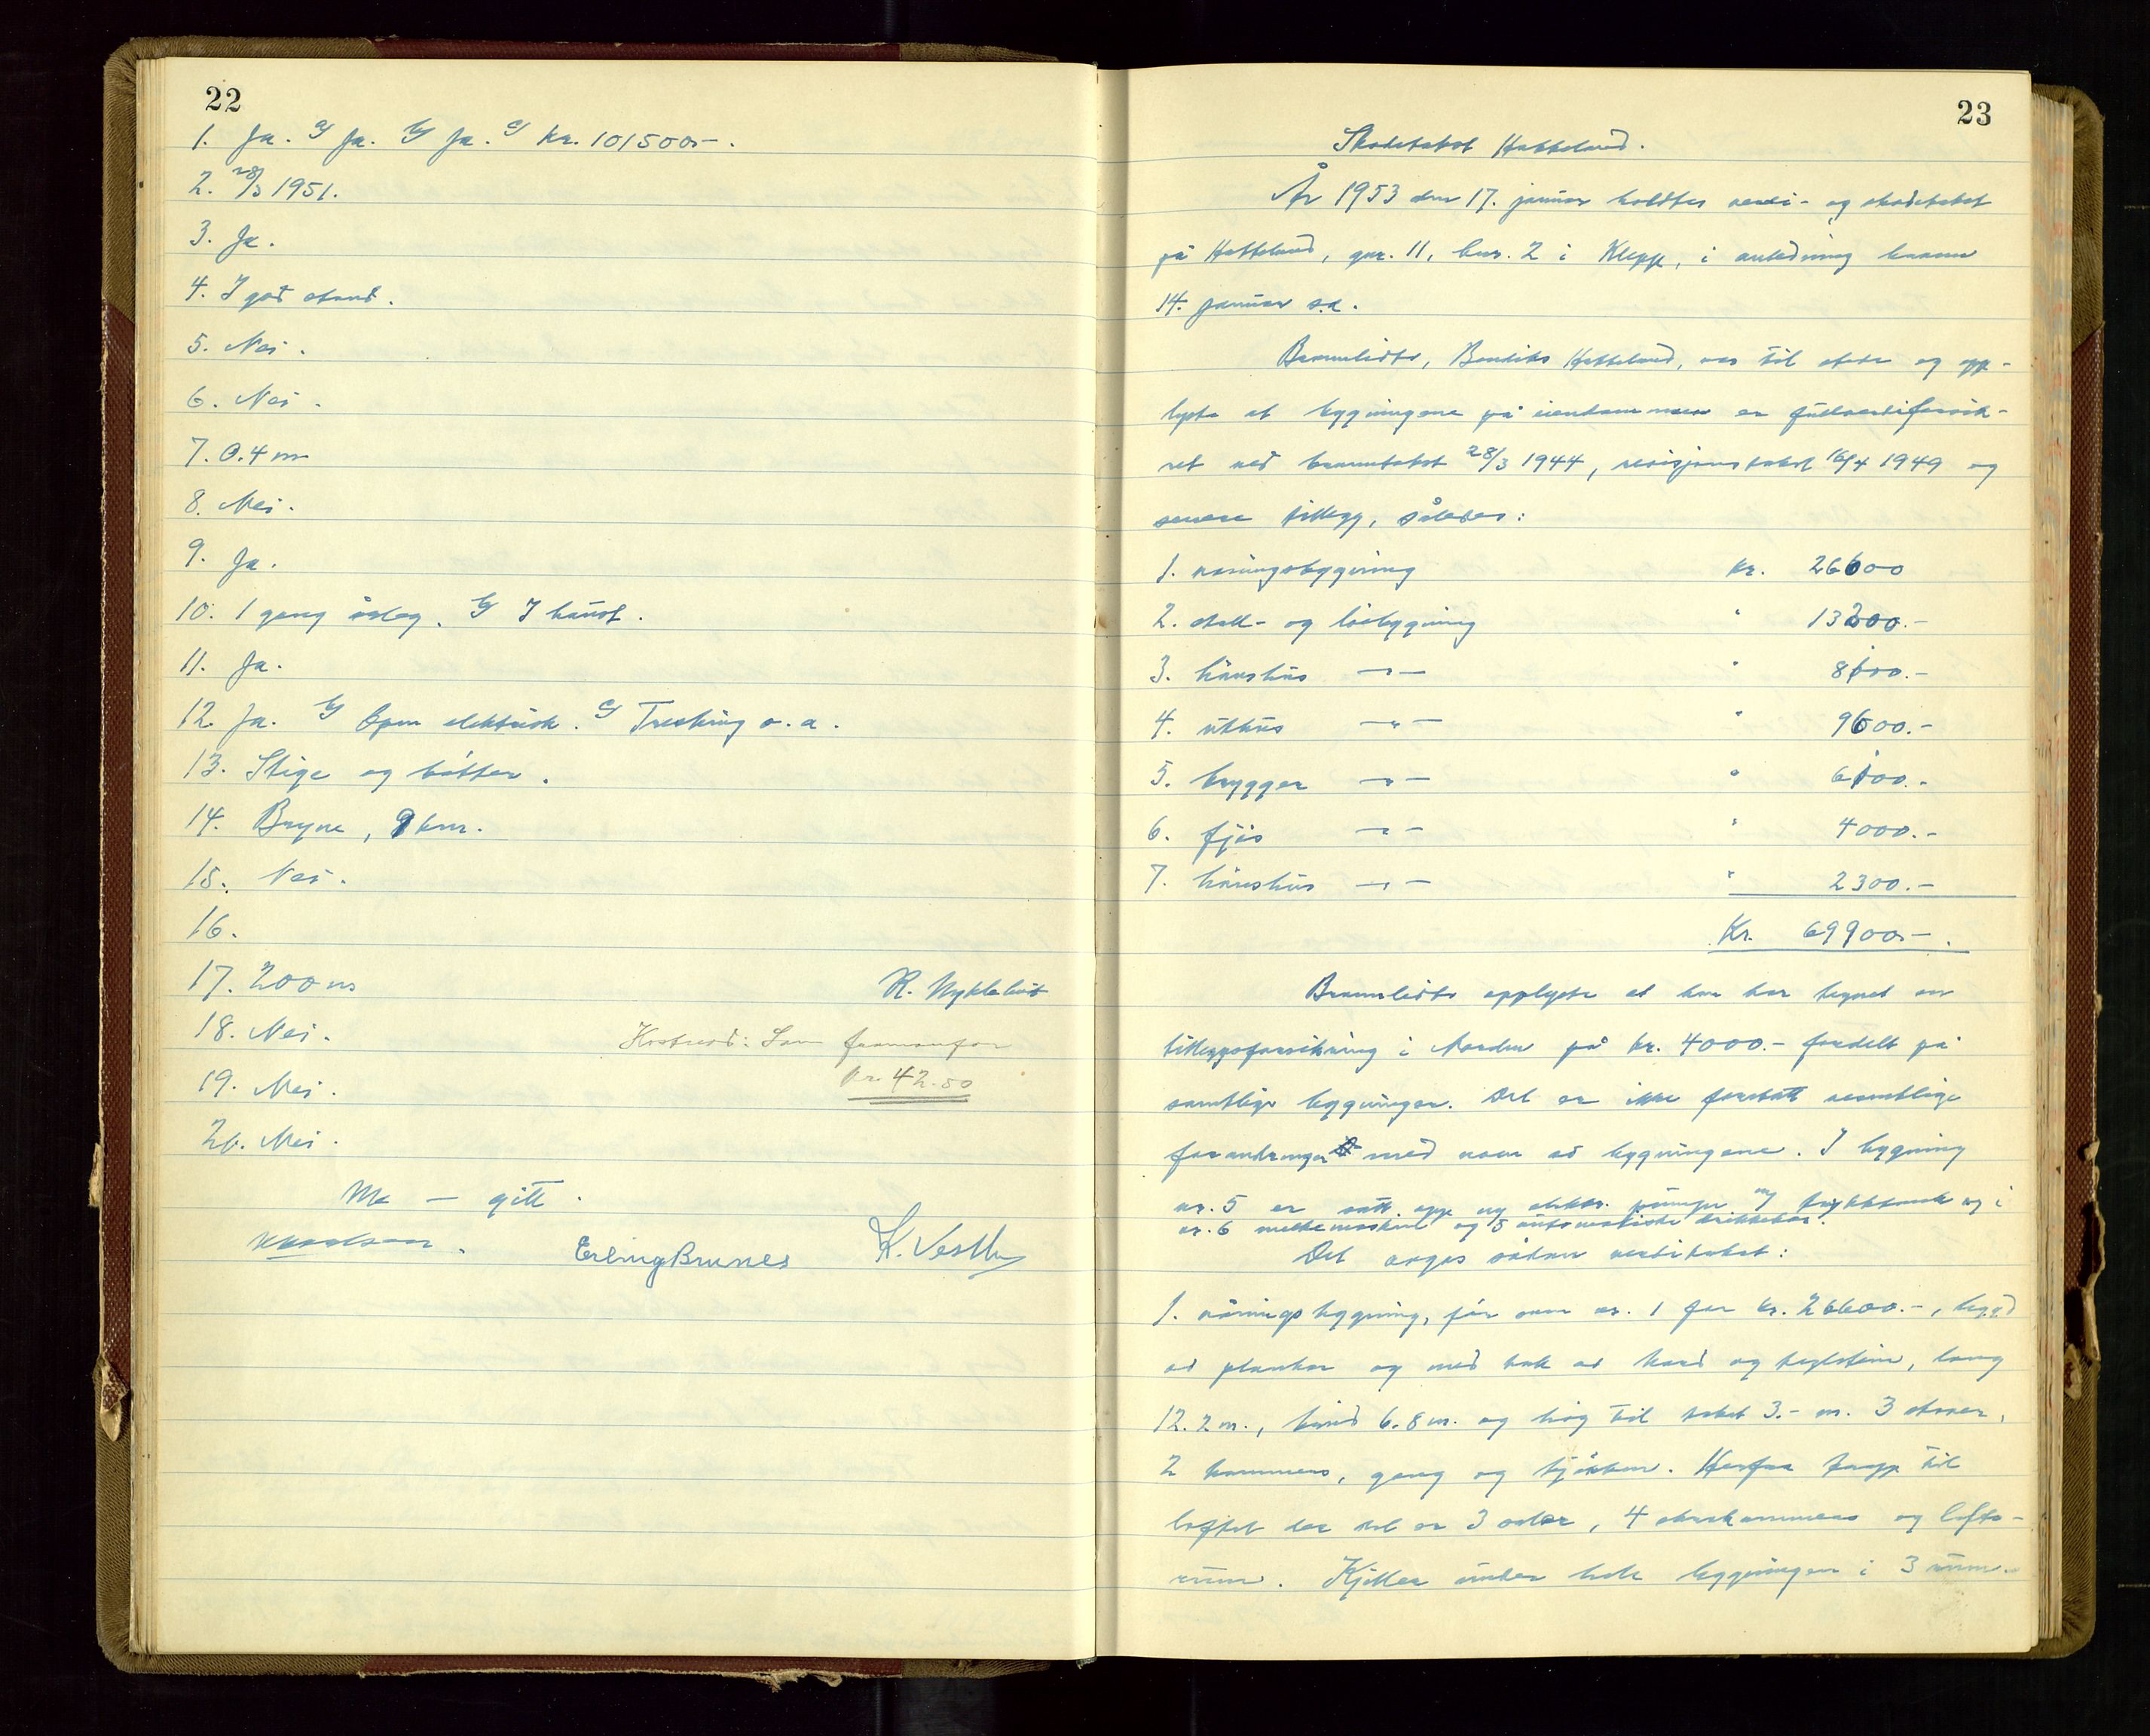 22
1. Ja. a/ Ja. b/ Ja. c/ Kr. 101500.-.
2. 28/3 1951.
3. Ja.
4. I god stand.
5. Nei.
6. Nei.
7. 0.4 m
8. Nei.
9. Ja.
10. 1 gang årleg. b/ I haust.
11. Ja.
12. Ja. b/ Open elektrisk. c/ Tresking o.a.
13. Stige og bøtter.
14. Bryne, 9 km.
15. Nei.
16.
17. 200 m
R. Nyklebust
18. Nei.
Kostnad: Som framanfor
19. Nei.
kr. 42.50
20. Nei.
Me — gitt.
Erling Brunes K. Vestly
23
Skadetakst Hatteland.
År 1953 den 17. januar holdtes verdi- og skadetakst
på Hatteland, gnr. 11, bnr. 2 i Klepp, i anledning brann
14. januar s.å.
Brannlidte, Bendiks Hatteland, var til stede og opp-
lyste at bygningene på eiendommen er fullverdiforsik-
ret ved branntakst 28/3 1944, revisjonstakst 16/4 1949 og
senere tillegg, således:
1. våningsbygning kr. 26600
2. stall- og løebygning " 13200.-
3. hønshus —"— " 8100.-
4. uthus —"— " 9600.-
5. brygger —"— " 6100.-
6. fjøs —"— " 4000.-
7. hønshus —"— " 2300.-
Kr. 69900.-.
Brannlidte opplyste at han har tegnet en
tilleggsforsikring i Norden på kr. 4000.- fordelt på
samtlige bygninger. Det er ikke foretatt vesentlige
forandringer med noen av bygningene. I bygning
nr. 5 er satt opp ny elektr. pumpe og trykktank og i
nr. 6 melkemaskin og 5 automatiske drikkekar.
Det avgas sådan verditakst:
1. våningsbygning, før som nr. 1 for kr. 26600.-, bygd
av planker og med tak av bord og teglstein, lang
12.2 m., breid 6.8 m. og høg til taket 3.- m. 3 stover,
2 kammers, gang og kjøkken. Herfra trapp til
loftet der det er 3 saler, 4 overkammers og lofts-
rum. Kjeller under hele bygningen i 3 rum.